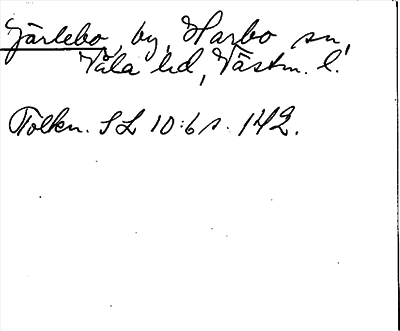 Järlebo, by, Harbo sn,
Våla hd, Västm. l.
Tolkn. SL 10:6 s. 142.